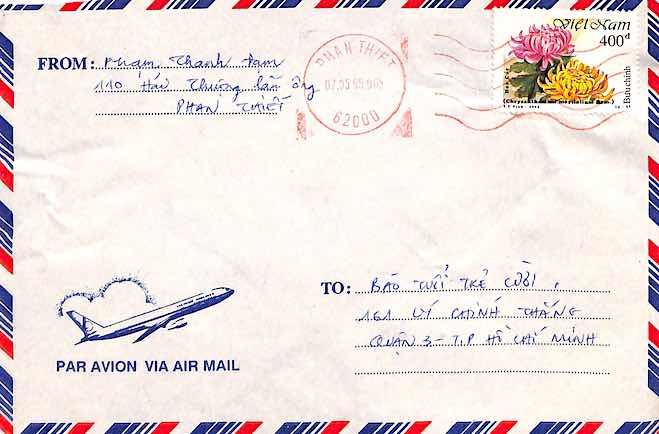 FROM: Phạm Thanh Đam
110 Hải Thượng Lãn Ông
PHAN THIẾT
PHAN THIET
07.05.95
62000
Việt Nam
400đ
Bưu chính
TO: BÁO TUỔI TRẺ CƯỜI,
161 LÝ CHÍNH THẮNG
QUẬN 3 - T.P HỒ CHÍ MINH
PAR AVION VIA AIR MAIL